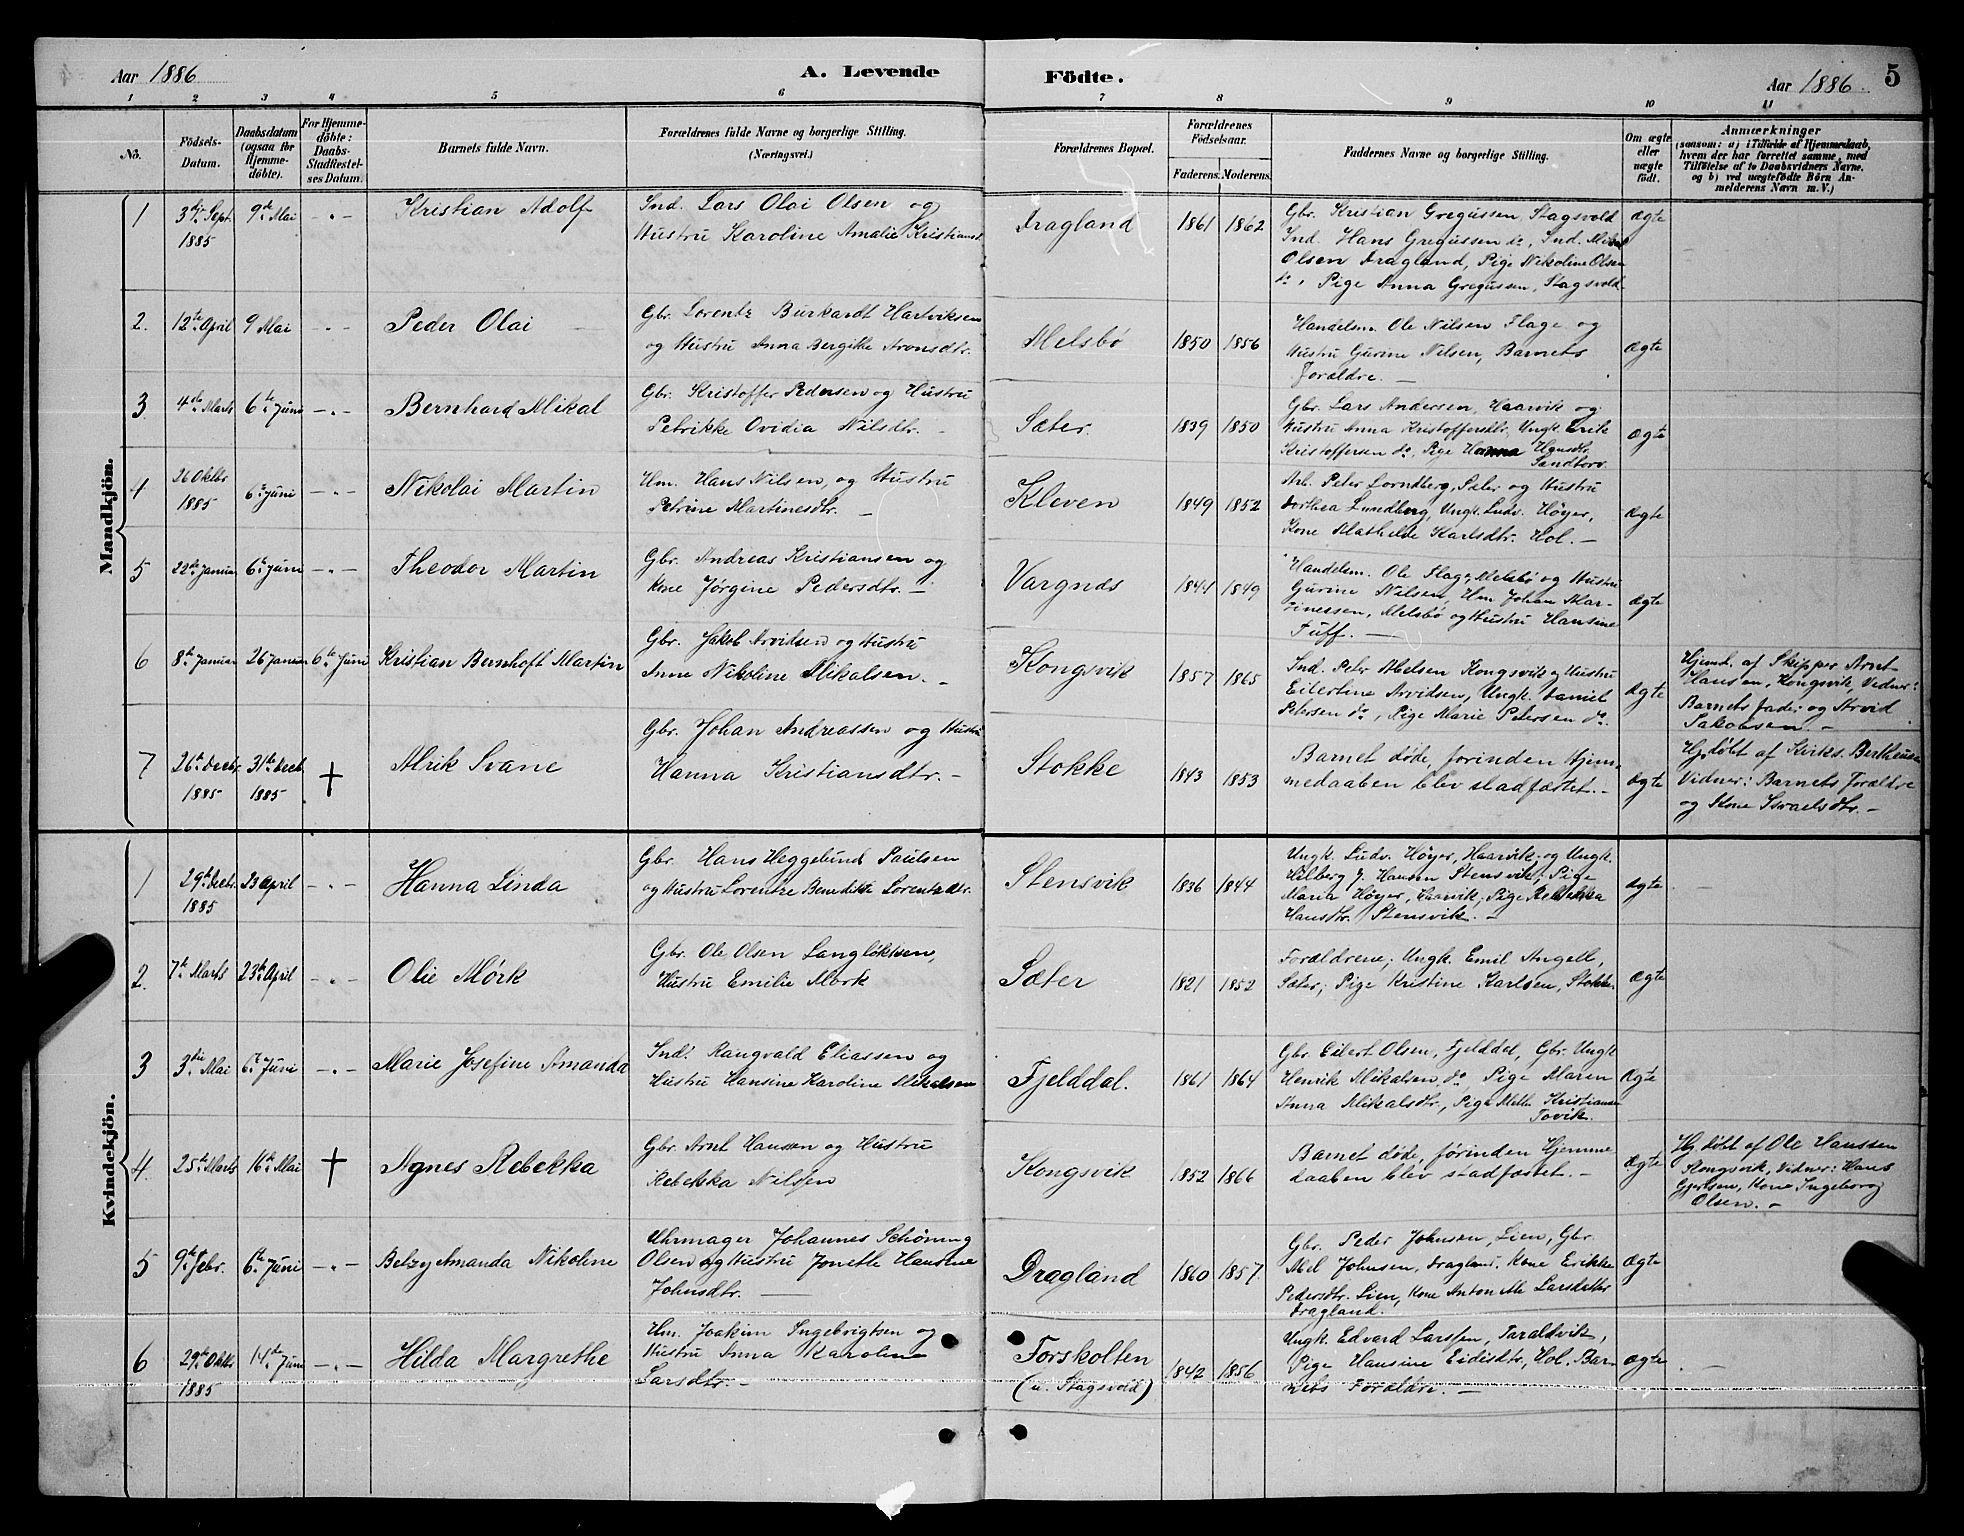 Aar 1886
A. Levende Födte.
Aar 1886
5
1 2 3 4 5 6 7 8 9 10 11
No.
Födsels-Datum.
Daabsdatum (ogsaa for Hjemme-döbte).
For Hjemme-döbte: Daabs-Stadfæstel-ses Datum.
Barnets fulde Navn.
Forældrenes fulde Navne og borgerlige Stilling.
(Næringsvei.)
Forældrenes Bopæl.
Forældrenes Födselsaar.
Faderens. Moderens.
Faddernes Navne og borgerlige Stilling.
Om ægte eller uægte födt.
Anmærkninger
(saasom: a) i Tilfælde af Hjemmedaab, hvem der har forrettet samme, med Tilföielse af to Daabsvidners Navne, og b) ved uægtefödte Börn Anmelderens Navn m. V.)
Mandkjön.
1
3die Sept. 1885
9de Mai
- " -
Kristian Adolf
Ind. Lars Olai Olsen og
Hustru Karoline Amalie Kristiansd.
Dragland
1861 1862
Gbr. Kristian Gregussen, Stagsvold
Ind. Hans Gregussen do, Ind. Mikal
Olsen Dragland, Pige Nikoline Olsen
do, Pige Anna Gregussen, Stagsvold
Ægte
2.
12te April
9 Mai
- " -
Peder Olai
Gbr. Lorentz Burkardt Hartviksen
og Hustru Anna Bergitte Aronsdtr.
Melsbö
1850 1856
Handelsm. Ole Nilsen Flage og
Hustru Gurine Nilsen, Barnets
Forældre. -
Ægte
3
4de Marts
6te Juni
- " -
Bernhard Mikal
Gbr. Kristoffer Pedersen og Hustru
Petrikke Ovidia Nilsdtr. -
Sæter.
1839 1850
Gbr. Lars Andersen, Haarvik og
Hustru Anna Kristoffersdtr, Ungk. Erik
Kristoffersen do, Pige Hanna Hansdtr.
Sandtorv
Ægte
4
26 Oktbr 1885
6te Juni
- " -
Nikolai Martin
Hm. Hans Nilsen, og Hustru
Petrine Martinesdtr. -
Kleven
1849 1852
Arb. Peter Lorndberg, Sæter og Hustru
Dorthea Lundberg, Ungk. Ludv. Høyer,
Kone Mathelde Karlsdtr. Hol. -
Ægte
5
22de Januar
6te Juni
- " -
Theodor Martin
Gbr. Andreas Kristiansen og
Kone Jørgine Pedersdtr. -
Vargnæs
1844 1849
Handelsm. Ole Flage, Melsbö og Hustru
Gurine Nilsen, Hm Johan Mar-
tinessen, Melsbö og Hustru Hansine
Tuff. -
Ægte
6
8de Januar
26 Januar
6te Juni
Kristian Bernhoft Martin
Gbr. Jakob Arvidsen og Hustru
Anne Nikoline Mikalsen. -
Kongsvik
1857 1865
Ind. Peter Abelsen Kongsvik og Hustru
Eilertine Arvidsen, Ungk. Daniel
Petersen do, Pige Marie Petersen do.
Ægte
Hjemd. af Skipper Arnt
Hansen, Kongsvik, Vidner:
Barnets fader og Arvid
Jakobsen -
7
26de Decbr. 1885
31te Decb. 1885
†
Alrik Svane
Gbr. Johan Andreassen og Hustru
Hanna Kristiansdtr. -
Stokke
1843 1853
Barnet døde, forinden Hjem-
medaaben blev stadfæstet. -
Ægte
Hj. døbt af Kirks. Bertheusen
Vidner: Barnets Forældre
og Kone Israelsdtr. -
Kvindekjön.
1
29de Decbr. 1885
23 April
- " -
Hanna Linda
Gbr. Hans Heggelund Paulsen
og Hustru Lorentze Benedikte Lorentzdtr.
Stensvik
1836 1844
Ungk. Ludv. Høyer, Haarvik og Ungk.
Hilberg J. Hansen Stensvik, Pige
Maria Høyer, Haarvik, Pige Rebekka
Hansdtr. Stensvik. -
Ægte
-
2.
7de Marts
23de April
- " -
Olie Mørk
Gbr. Ole Olsen Langløkken,
Hustru Emilie Mørk
Sæter
1821 1852
Forældrene; Ungk. Emil Angell,
Sæter; Pige Kristine Karlsen, Stokke
Ægte
3
3die Mai
6te Juni
- " -
Marie Josefine Amanda
Ind. Rangvald Eliassen og
Hustru Hansine Karoline Mikalsen
Fjelddal.
1861 1864
Gbr. Eilert Olsen, Fjelddal, Gbr. Ungk
Henrik Mikalsen, do, Pige Maren
Anna Mikalsdtr., Pige Mette Kristiansen
Tovik.
Ægte
4.
25de Marts
16de Mai
†
Agnes Rebekka
Gbr Arnt Hansen og Hustru
Rebekka Nilsen
Kongsvik
1852 1866
Barnet døde, førinden Hjemme
daaben blev stadfæstet. -
Ægte
Hj. døbt af Ole Hanssen
Kongsvik, Vidner: Hans
Gjertsen, Kone Ingeborg
Olsen. -
5
9de Febr.
6te Juni
- " -
Betzy Amanda Nikoline
Uhrmager Johannes Schöning
Olsen og Hustru Jonette Hansine
Johnsdtr. -
Dragland
1860 1857
Gbr. Peder Johnsen, Lien, Gbr.
Abel Johnsen, Dragland, Kone Erikke
Pedersdtr. Lien, Kone Antonette Larsdatter
Dragland.
Ægte
6
29de Oktbr 1885
14de Juni
- " -
Hilda Margrethe
Hm. Joakim Ingebrigtsen og
Hustru Anna Karoline
Larsdtr. -
Forskolten
(u. Stagsvold)
1842 1856
Ungk. Edvard Larssen, Taraldvik,
Pige Hansine Eidisdtr, Hol, Bar-
nets Forældre. -
Ægte
-